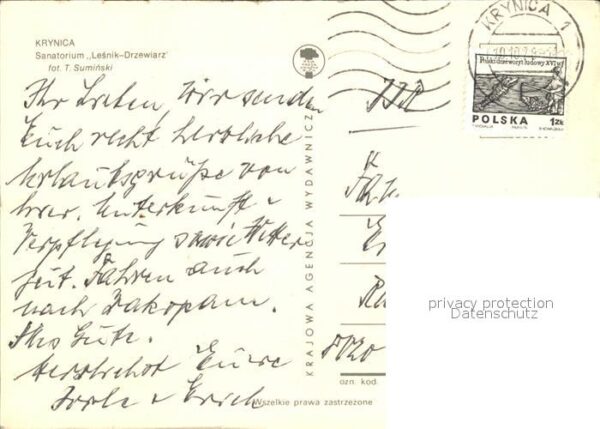 KRYNICA
Sanatorium „Leśnik-Drzewiarz"
fot. T. Sumiński
Ihr Lieben, Wir senden
Euch recht herzliche
Urlaubsgrüße von
hier. Unterkunft +
Verpflegung sowie Wetter
gut. Fahren auch
nach Zakopane.
Alles Gute.
Herzlichst Eure
u. Erich
KRAJOWA AGENCJA WYDAWNICZA
KRYNICA 1
Polski drzeworyt ludowy XVI w
POLSKA 1zł
DDR
Fa
8020
ozn. kod.
Wszelkie prawa zastrzeżone
privacy protection
Datenschutz